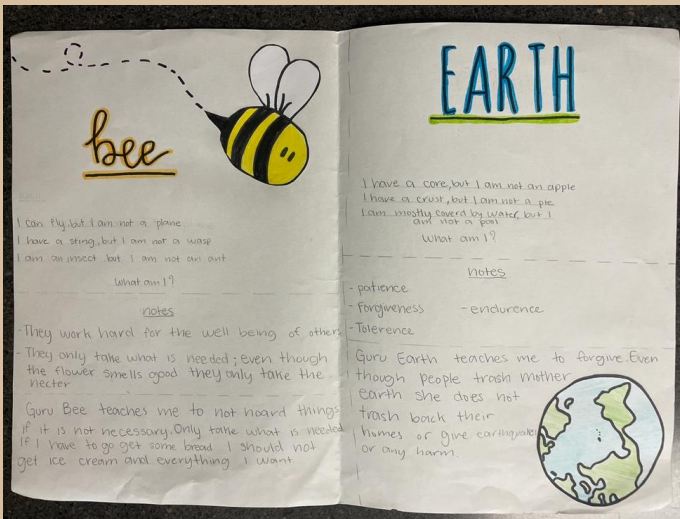 bee
I can fly but I am not a plane
I have a sting, but I am not a wasp
I am an insect but I am not an ant
What am I?
notes
- They work hard for the well being of others
- They only take what is needed; even though
the flower smells good they only take the
necter
Guru Bee teaches me to not hoard things
if it is not necessary. Only take what is needed
If I have to go get some bread I should not
get ice cream and everything I want
EARTH
I have a core, but I am not an apple
I have a crust, but I am not a pie
I am mostly coverd by water, but I
am not a pool
What am I?
notes
- patience
- Forgiveness - endurence
- Tolerence
Guru Earth teaches me to forgive. Even
though people trash mother
earth she does not
trash back their
homes or give earthquakes
or any harm.